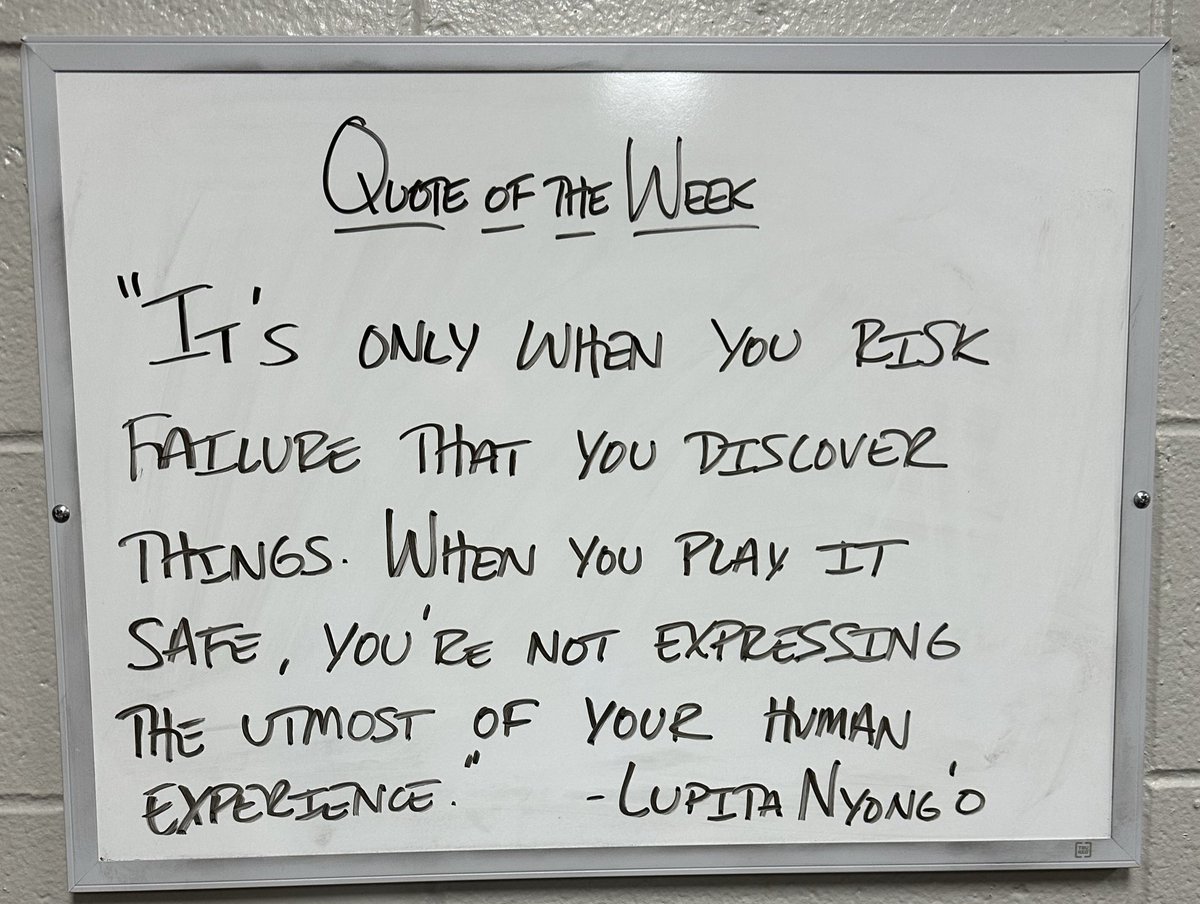 QUOTE OF THE WEEK
"IT'S ONLY WHEN YOU RISK
FAILURE THAT YOU DISCOVER
THINGS. WHEN YOU PLAY IT
SAFE, YOU'RE NOT EXPRESSING
THE UTMOST OF YOUR HUMAN
EXPERIENCE." - LUPITA NYONG'O
TRU
RED